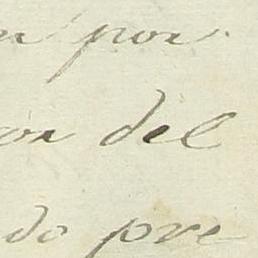 n por
on del
do pre